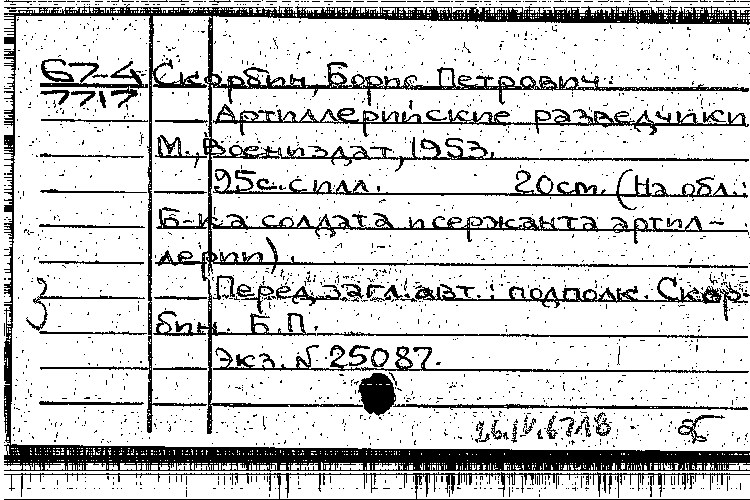 67-4 Скорбин, Борис Петрович.
7717
Артиллерийские разведчики
М., Воениздат, 1953.
95с. с илл. 20cm. (На обл.:
Б-ка солдата и сержанта артил-
лерии).
Перед загл. авт.: подполк. Скор-
бин. Б.П.
Экз. N 25087.
26.IV.67